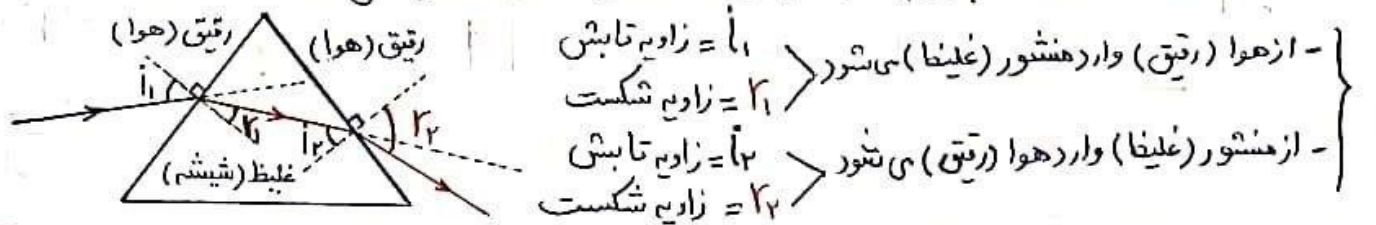 رقیق (هوا)
رقیق (هوا)
i₁
r₁
i₂
r₂
غلیظ (شیشه)
- از هوا (رقیق) وارد منشور (غلیظ) می شود
i₁ = زاویه تابش
r₁ = زاویه شکست
- از منشور (غلیظ) وارد هوا (رقیق) می شود
i₂ = زاویه تابش
r₂ = زاویه شکست